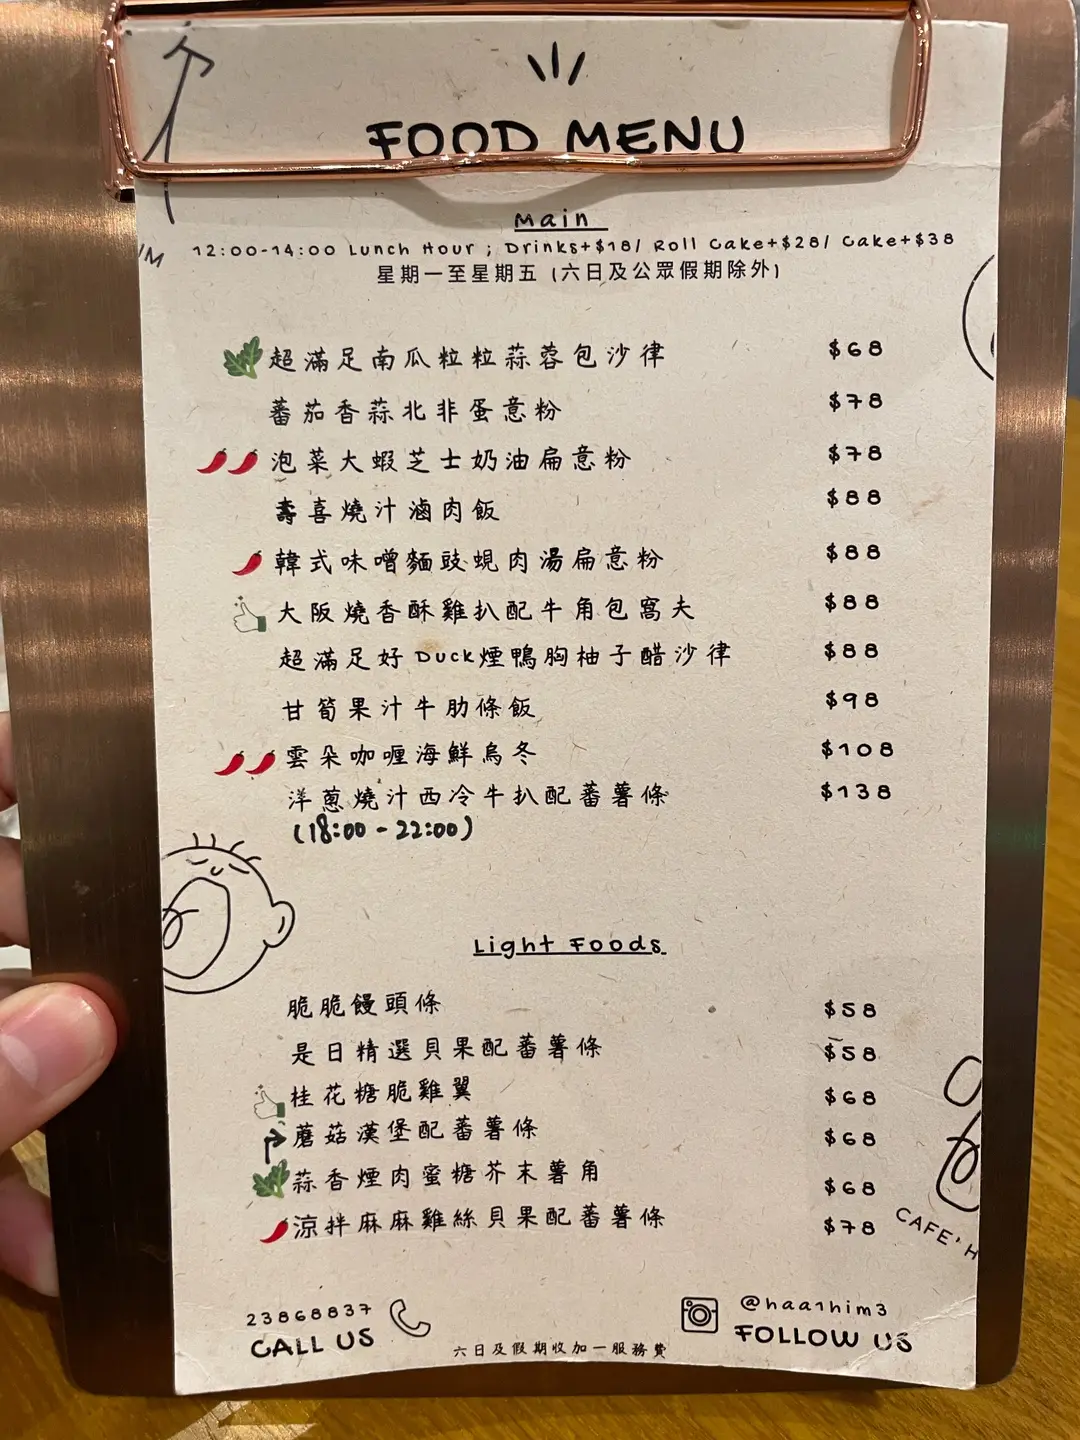 FOOD MENU
Main
12:00-14:00 Lunch Hour ; Drinks+$18/ Roll Cake+$28/ Cake+$38
星期一至星期五 (六日及公眾假期除外)
超滿足南瓜粒粒蒜蓉包沙律 $68
蕃茄香蒜北非蛋意粉 $78
泡菜大蝦芝士奶油扁意粉 $78
壽喜燒汁滷肉飯 $88
韓式味噌麵豉蜆肉湯扁意粉 $88
大阪燒香酥雞扒配牛角包窩夫 $88
超滿足好Duck煙鴨胸柚子醋沙律 $88
甘筍果汁牛肋條飯 $98
雲朵咖喱海鮮烏冬 $108
洋蔥燒汁西冷牛扒配蕃薯條 $138
(18:00-22:00)
Light Foods
脆脆饅頭條 $58
是日精選貝果配蕃薯條 $58
桂花糖脆雞翼 $68
蘑菇漢堡配蕃薯條 $68
蒜香煙肉蜜糖芥末薯角 $68
涼拌麻麻雞絲貝果配蕃薯條 $78
CAFE' H
23868837
CALL US
六日及假期收加一服務費
@haa1him3
FOLLOW US